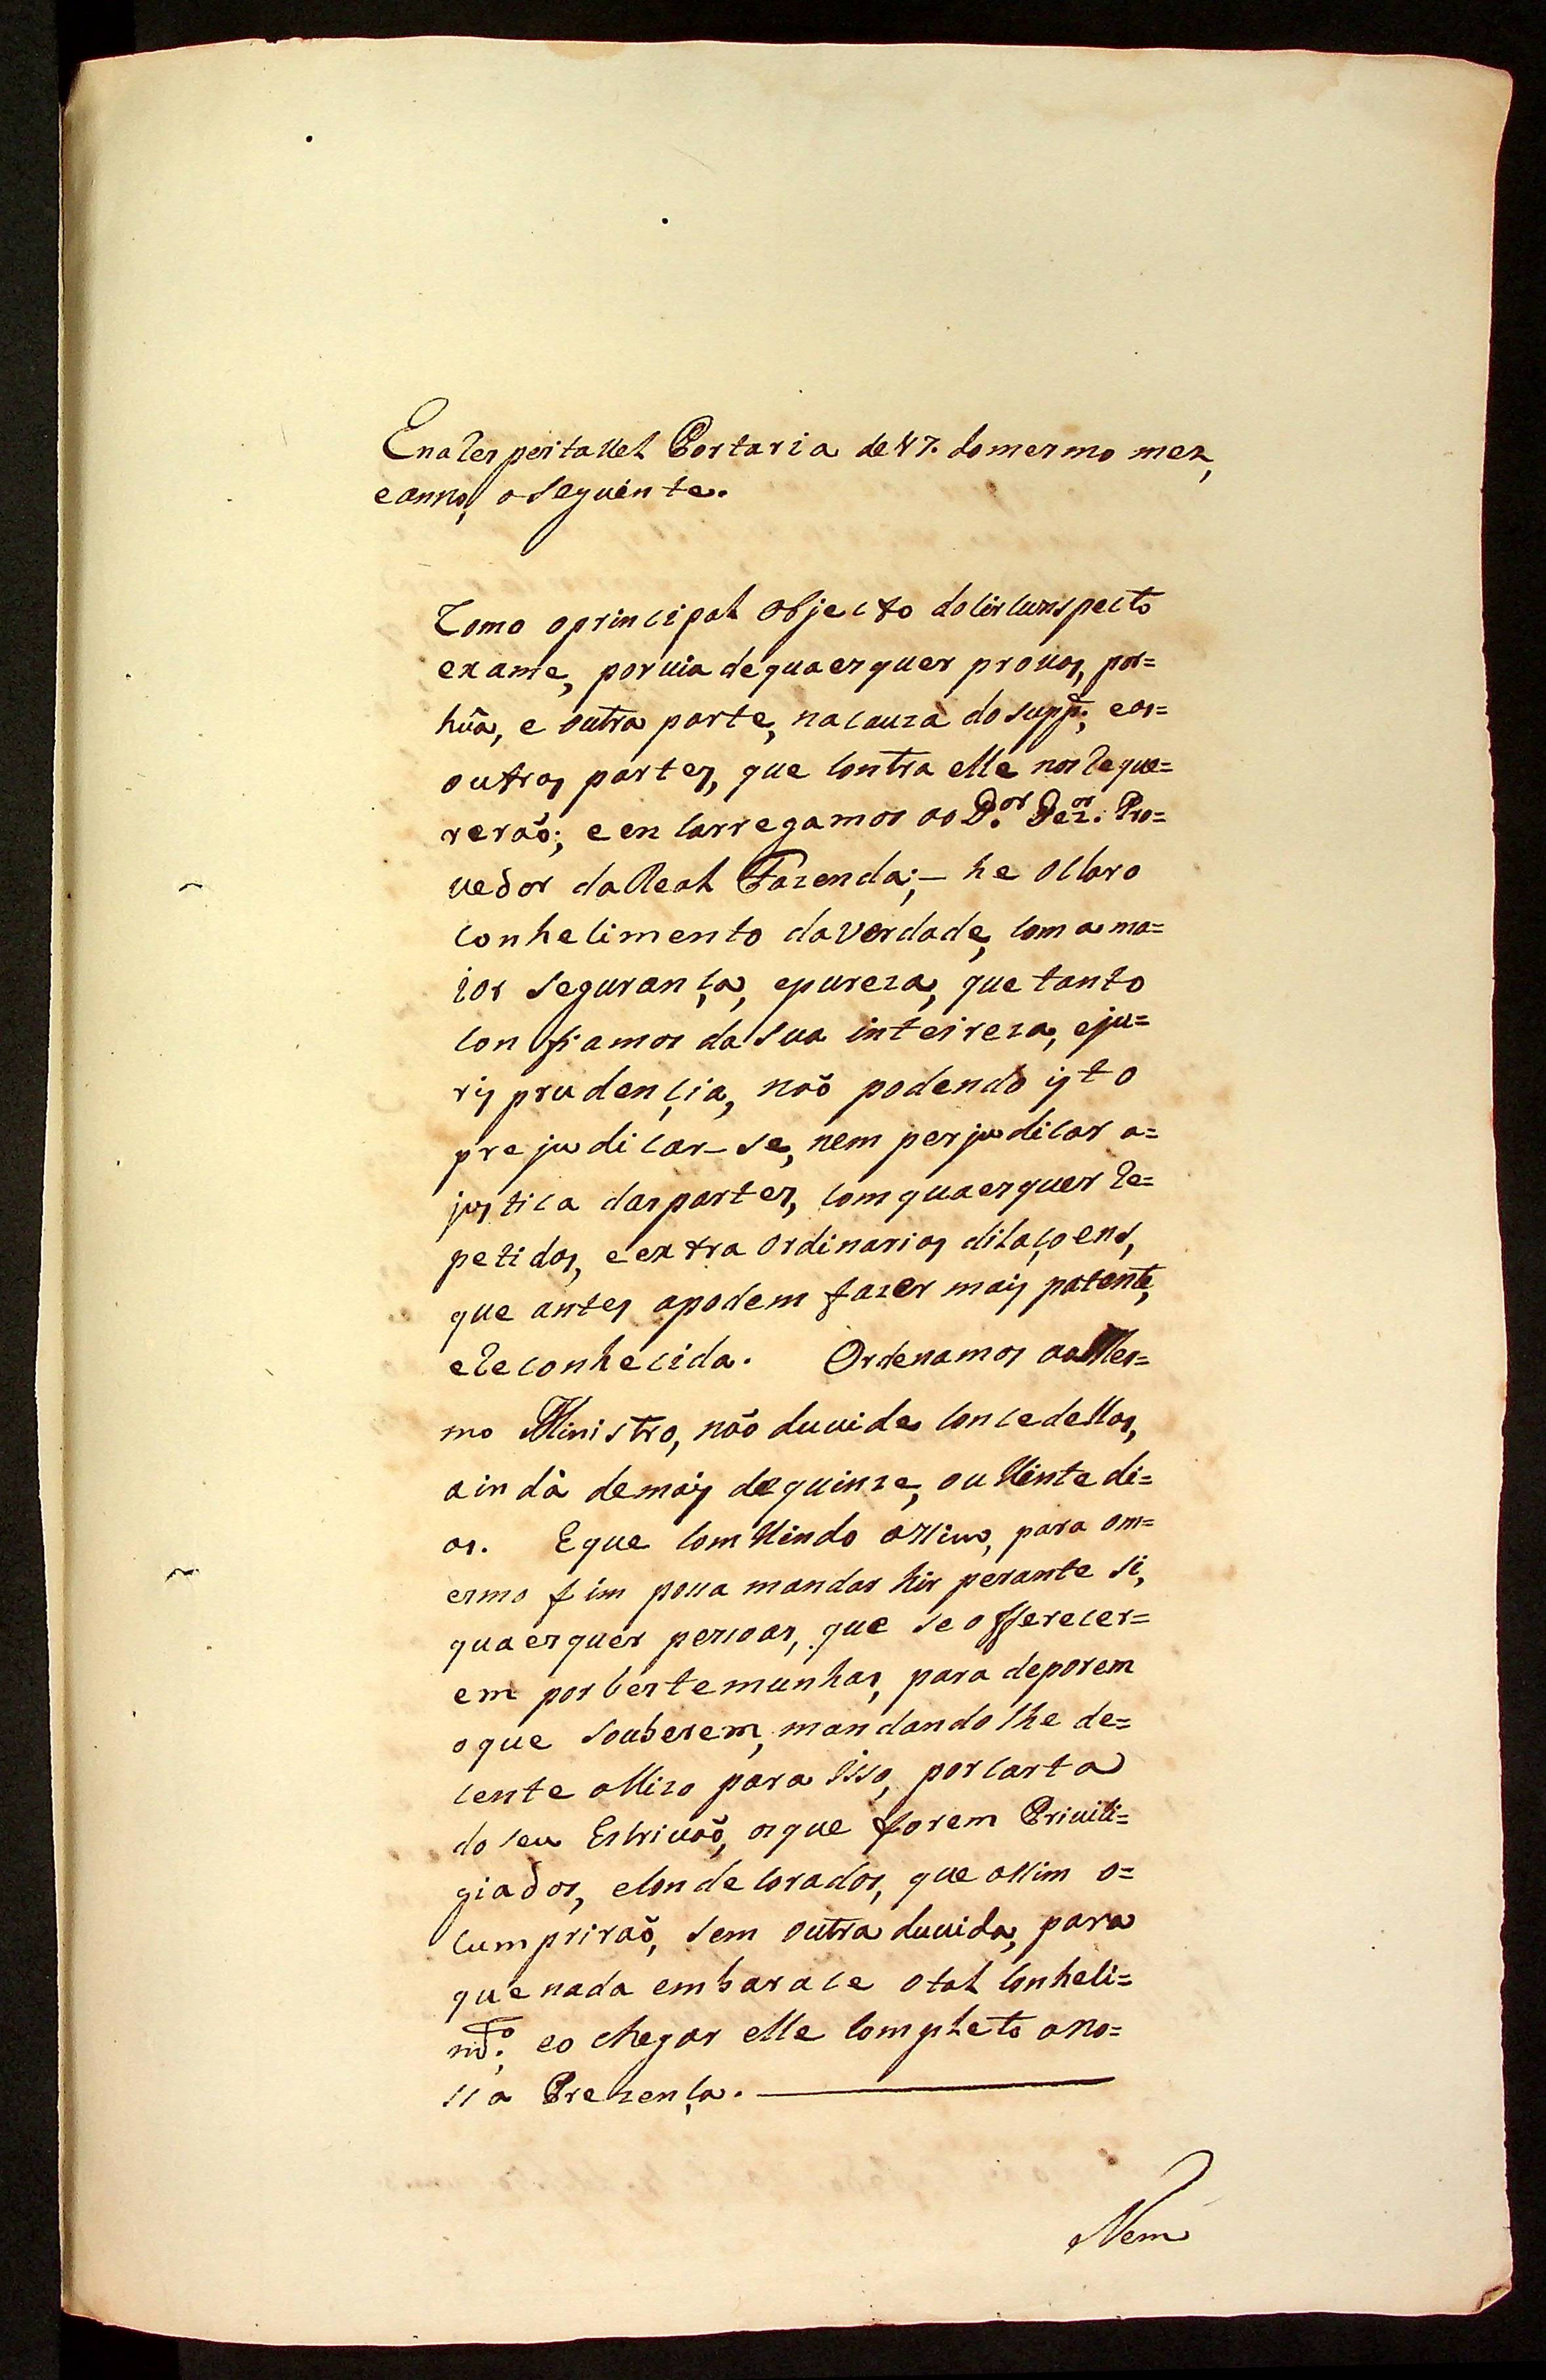 E na respeitavel Portaria de 17. do mesmo mez,
e anno, o seguinte.
Como o principal objecto do circunspecto
exame, por via de quaesquer provas, por=
hũa, e outra parte, na cauza do supp.e, e as=
outras partes, que contra elle nos reque=
rerão; e encarregamos ao D.or Dez.or Pro=
vedor da Real Fazenda; - he o claro
conhecimento da verdade, com a ma=
ior segurança, e pureza, que tanto
confiamos da sua inteireza, e ju=
risprudencia, não podendo isto
prejudicar-se, nem perjudicar a=
justica das partes, com quaesquer re=
petidas, e extraordinarias dilaçoens,
que antes a podem fazer mais patente,
e reconhecida. Ordenamos ao Mes=
mo Ministro, não duvide concedellas,
ainda de mais de quinze, ou vinte di=
as. E que convindo assim, para o m=
esmo fim possa mandar hir perante si,
quaesquer pessoas, que se offerecer=
em por testemunhas, para deporem
o que souberem, mandando lhe de=
cente avizo para isso, por carta
do seu Escrivão, os que forem Privili=
giados, e condecorados, que assim o=
cumprirão, sem outra duvida, para
que nada embarace o tal conheci=
m.to; e o chegar elle completo a no=
ssa Prezença.
Nem